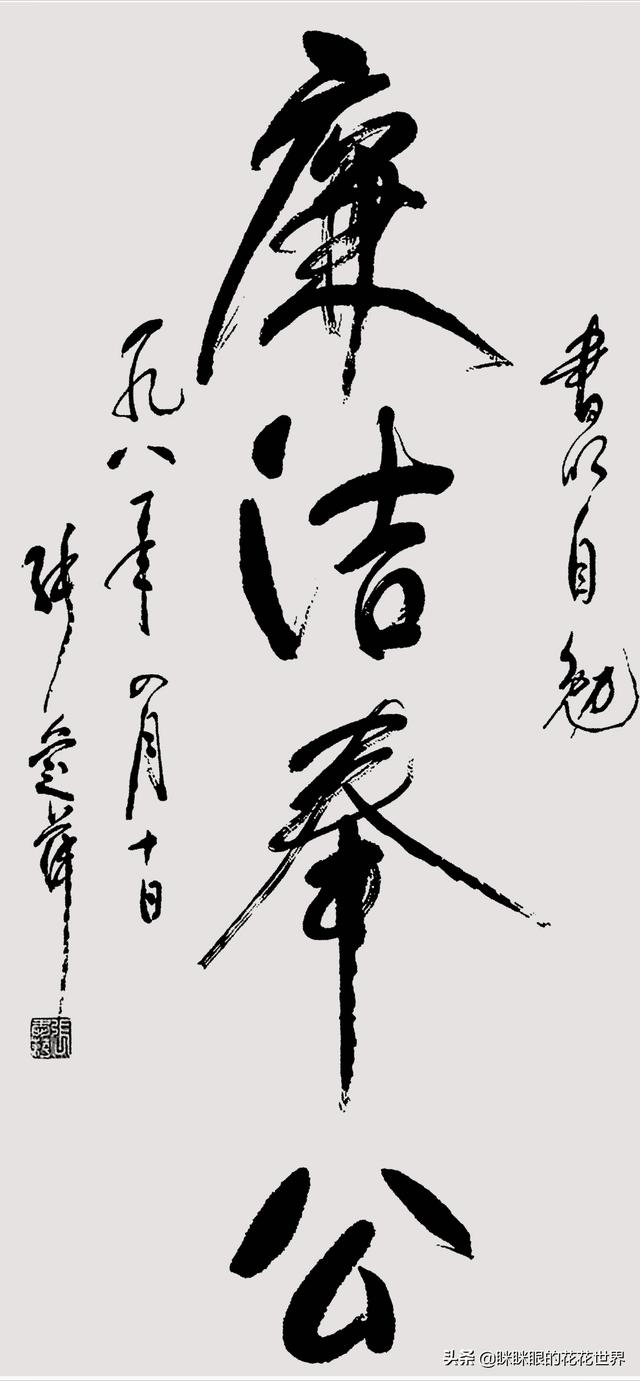 書以自勉
廉洁奉公
一九八年四月十日
张爱萍
头条 @眯眯眼的花花世界